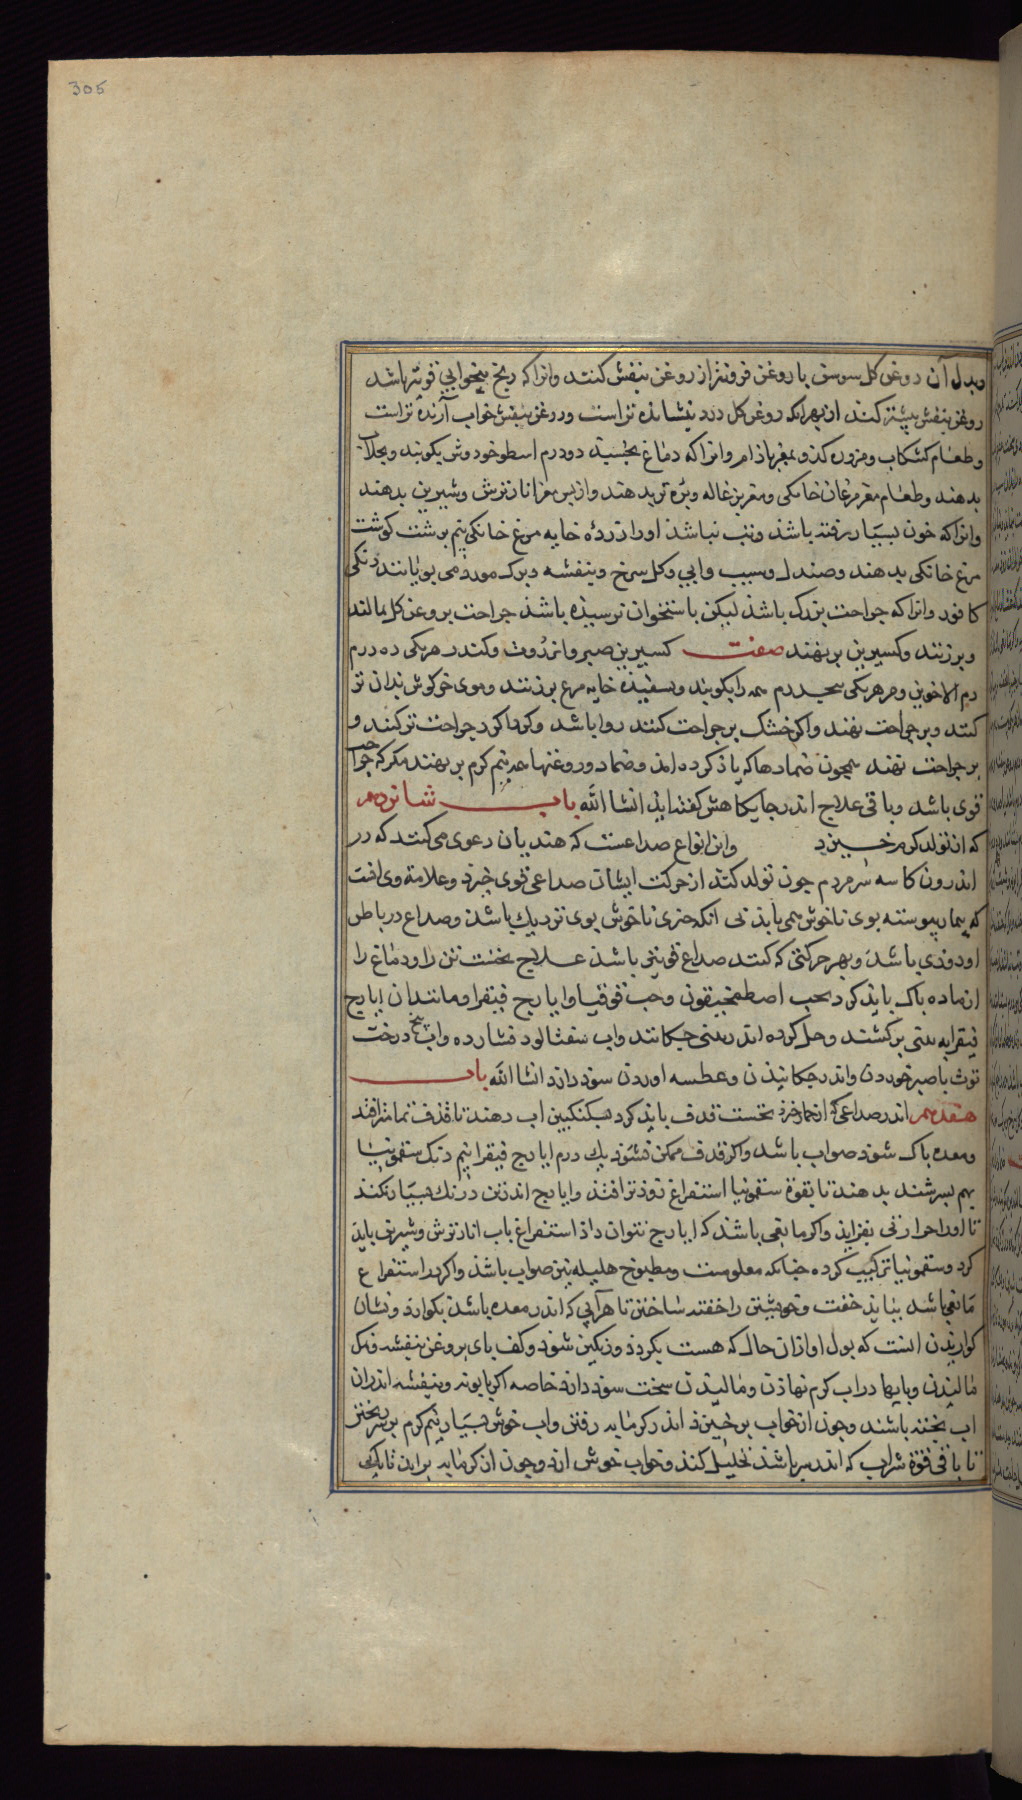 305
وبدل آن روغن کل سوسن یا روغن فروتر از روغن بنفش کنند وانرا که رنج بیخوابی قویتر باشد
روغن بنفش بیشتر کنند از بهر انکه روغن کل درد نشاننده تر است وروغن بنفش خواب آرنده تر است
وطعام کشکاب ومزوره کدو بمغز باذام وانرا که دماغ بجنبیذ دودرم اسطوخودوش بکوبند وبجلاب
بدهند وطعام مغز مرغان خانکی ومغز بزغاله وبره تر بدهند وازپس مغز انار ترش وشیرین بدهند
وانرا که خون بسیار رفته باشذ وتب نباشذ اورا زرده خایه مرغ خانکی نیم برشت کوشت
مرغ خانکی بدهند وصندل وسیب وابی وکل سرخ وبنفشه وبرک مورد می بویانند واندکی
کافور وانرا که جراحت بزرک باشذ لیکن باستخوان نرسیذه باشذ جراحت بروغن کل بمالند
وبرزنند وکسیرین بر نهند صفت کسیرین صبر وانزروت وکندر هریکی ده درم
دم الاخوین ومر هریکی پنجدرم همه را بکوبند وبسفیذه خایه مرغ بزنند وموی خرکوش بدان تر
کنند وبر جراحت نهند واکر خشک بر جراحت کنند روا باشد وکرداکرد جراحت تر کنند و
بر جراحت نهند همچون ضمادها که یاذ کرده امذ وضماد وروغنها همه نیم کرم بر نهند مکر که جراحت
قوی باشد وباقی علاج اندر جایکاهش کفته ایذ انشا الله باب شانزدهم
که از تولد کرم خیزد واین انواع صداعست که هندیان دعوی می کنند که در
اندرون کاسه سر مردم چون تولد کند از حرکت ایشان صداعی قوی خیزد وعلامة وی انست
که بیمار پیوسته بوی ناخوش همی یابذ بی انکه چیزی ناخوش بوی نزدیک باشذ وصداع در باطن
او دوذی باشد وبهر حرکتی که کند صداع قوی تر باشذ علاج نخست تن را ودماغ را
از ماده پاک بایذ کرد بحب اصطمخیقون وحب قوقیا وایارج فیقرا ومانند ان ایارج
فیقرا به بینی برکشند وحل کرده اندر بینی چکانند واب شفتالو فشارده واب بیخ درخت
توث با صبر خوردن واندر چکانیذن وعطسه اوردن سوذ دارذ انشا الله باب
هفدهم اندر صداعی که از خمار خیزد نخست قذف بایذ کرد بسکنکبین اب دهند تا قذف تمام افتد
ومعده پاک شوذ صواب باشد واکر قذف ممکن نشوذ یک درم ایارج فیقرا نیم دنک سقمونیا
بهم بسرشند بدهند تا بقوة سقمونیا استفراغ زوذ تر افتذ وایارج اندر تن درنک بسیار نکند
تا اورا حرارتی بفزایذ واکر مانعی باشذ که ایارج نتوان داذ استفراغ باب انار ترش وشیرین بایذ
کرد وسقمونیا ترکیب کرده چنانکه معلومست ومطبوخ هلیله نیز صواب باشذ واکر از استفراغ
مانعی باشد ببایذ خفت وخویشتن را خفته ساختن تا هرآبی که اندر معده باشذ بکوارد ونشان
کواریدن انست که بول او از ان حال که هست بکردذ ورنکین شوذ وکف پای بروغن بنفشه ونمک
مالیذن وپایها در اب کرم نهاذن ومالیذن سخت سوذ دارذ خاصه اکر بابونه وبنفشه اندران
اب پخته باشند وچون ازخواب برخیزذ اندر کرمابه رفتن واب خوش بسیار نیم کرم بر سر ریختن
تا باقی قوة شراب که اندر سر باشذ تحلیل کند وخواب خوش ارد وچون از کرمابه براید تا یکی